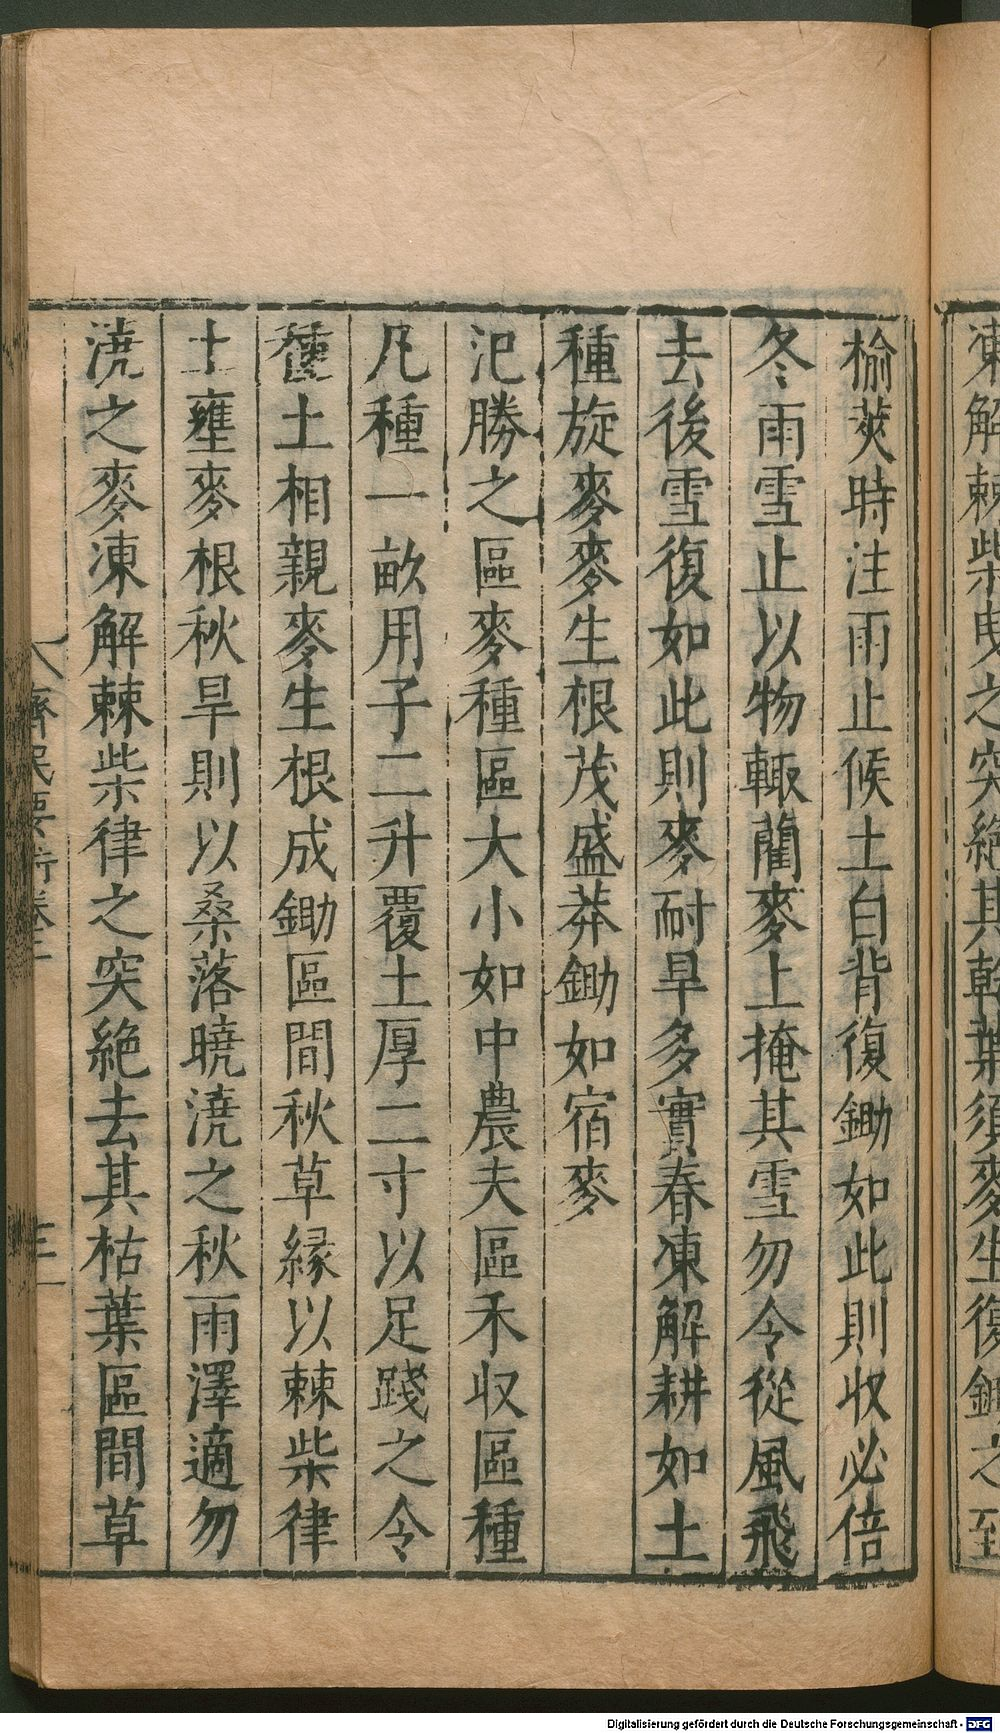 凍解棘柴曳之突絶其乾葉須麥生復鋤之至
榆莢時注雨止候土白背復鋤如此則收必倍
冬雨雪止以物輙藺麥上掩其雪勿令從風飛
去後雪復如此則麥耐旱多實春凍解耕如土
種旋麥麥生根茂盛莽鋤如宿麥
氾勝之區麥種區大小如中農夫區禾収區種
凡種一畝用子二升覆土厚二寸以足踐之令
種土相親麥生根成鋤區間秋草縁以棘柴律
土壅麥根秋旱則以桑落曉澆之秋雨澤適勿
澆之麥凍解棘柴律之突絶去其枯葉區間草
齊民要術卷二
三
Digitalisierung gefördert durch die Deutsche Forschungsgemeinschaft - DFG